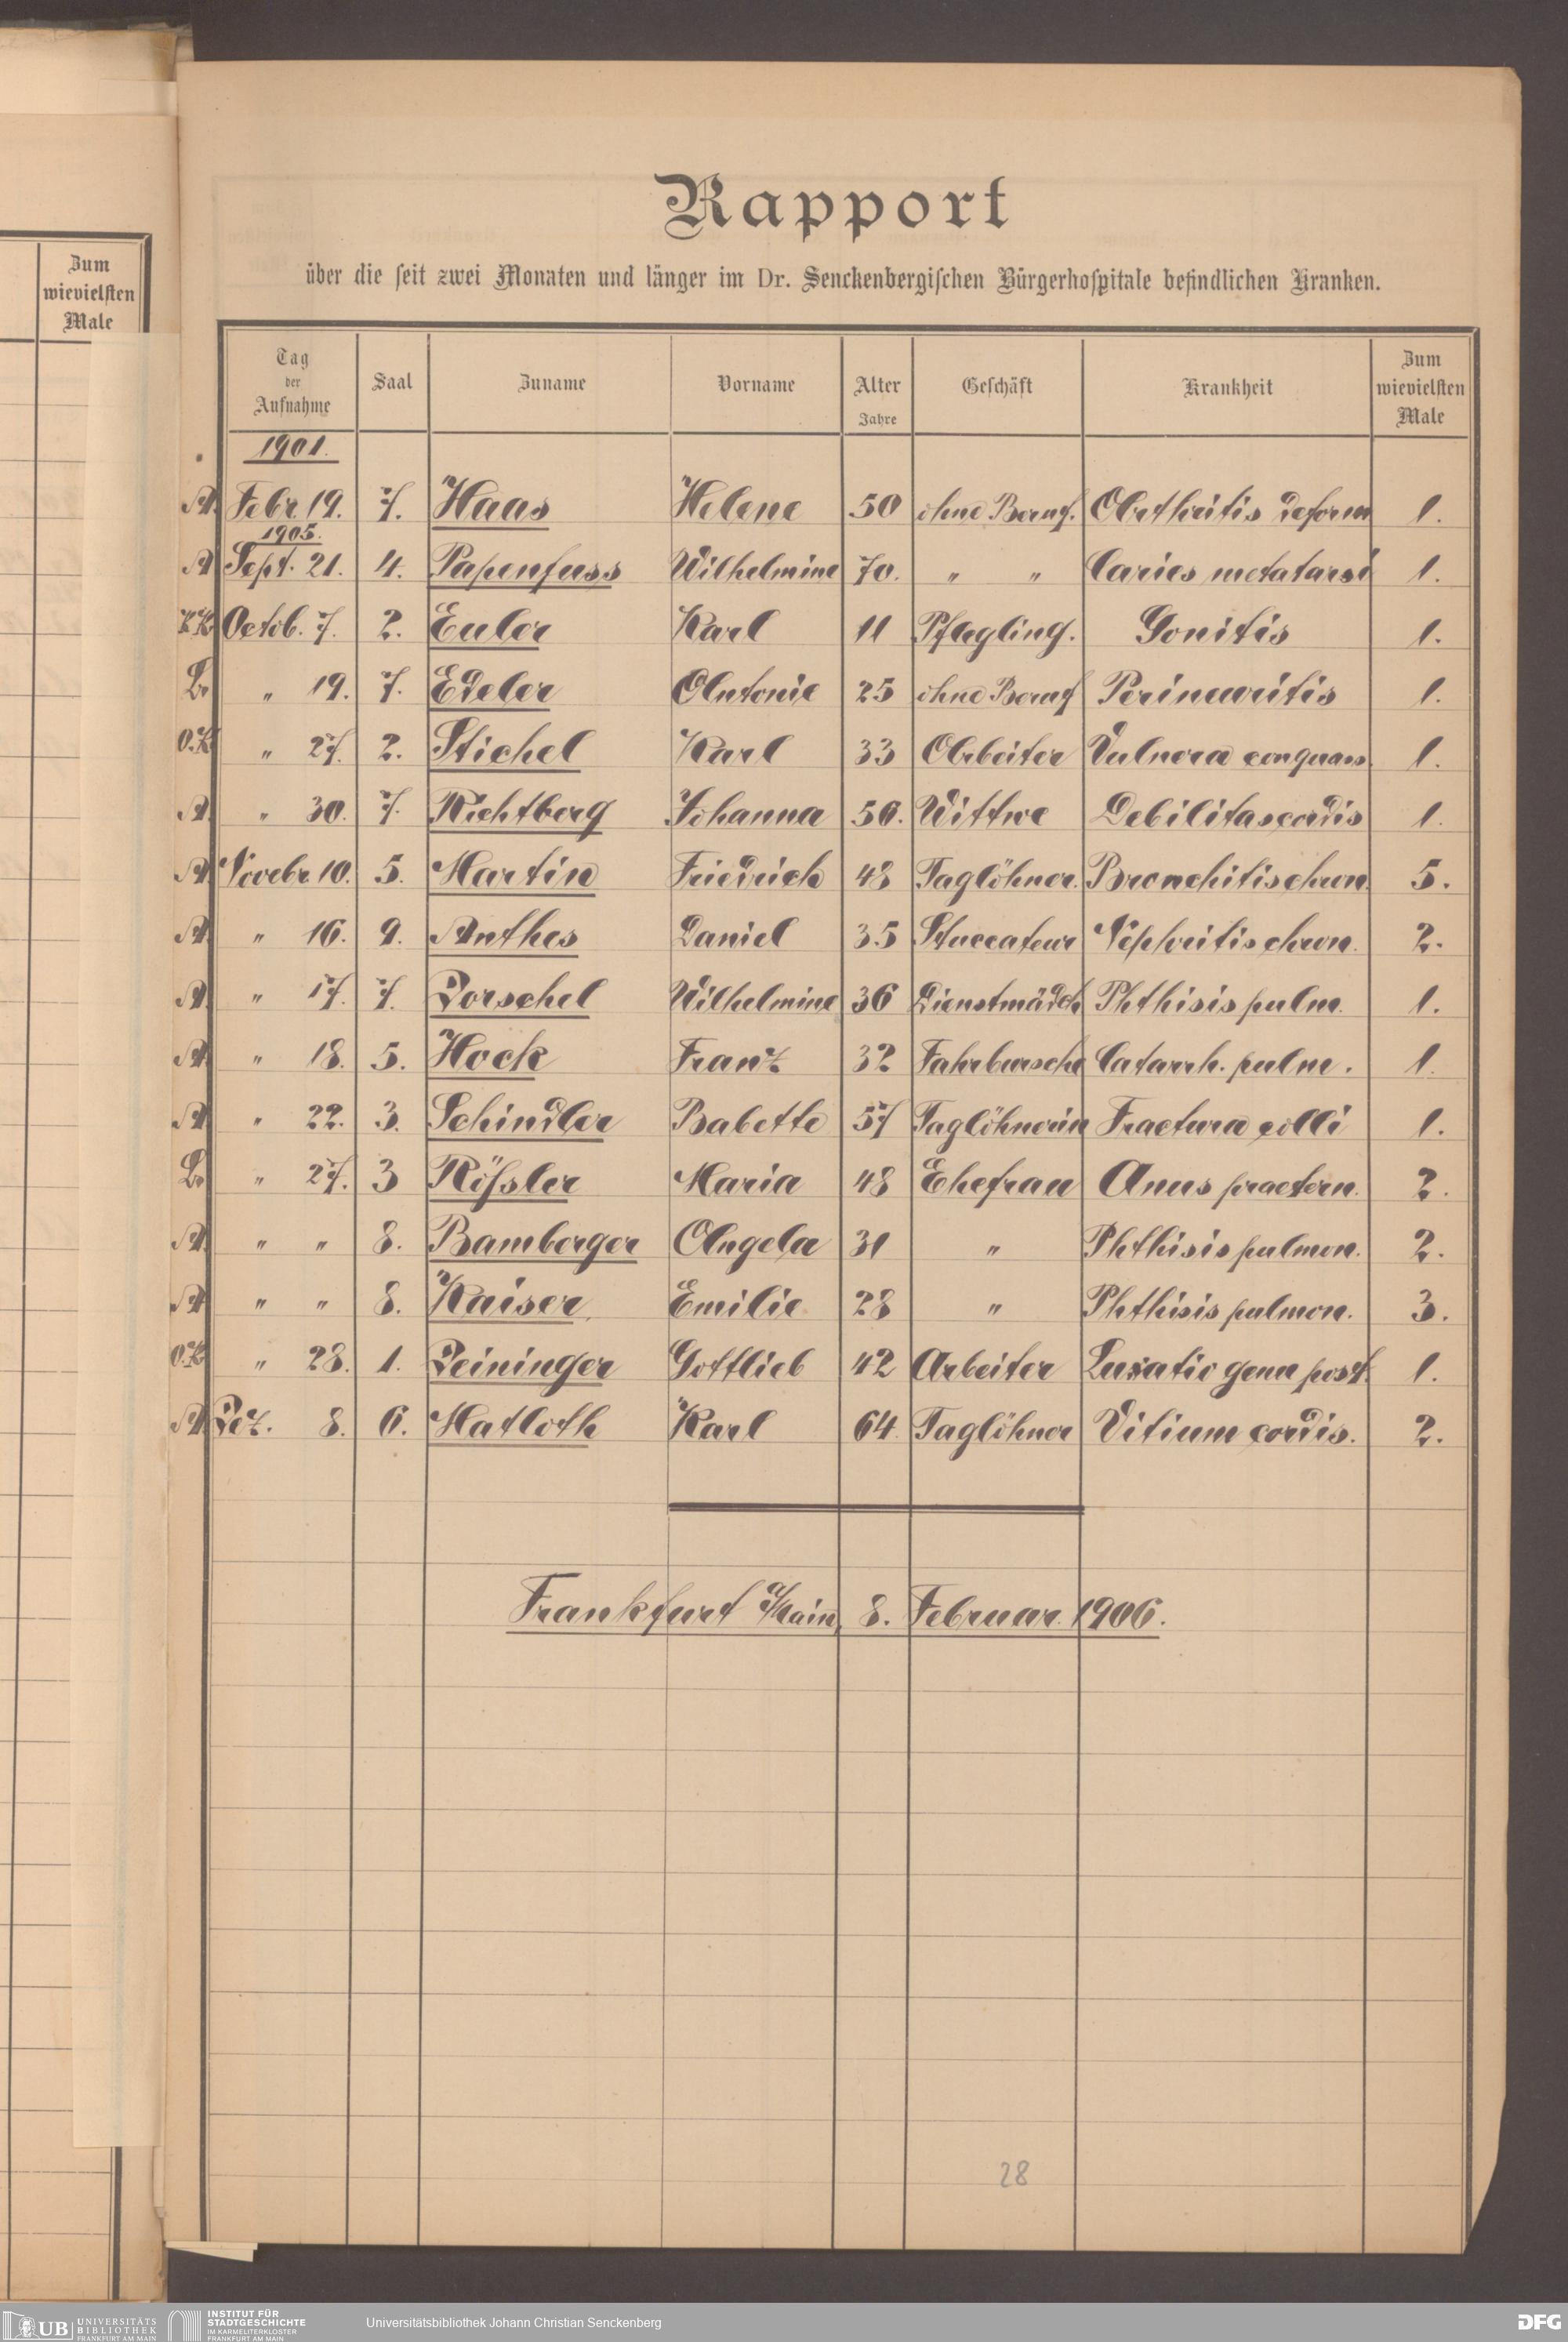 Zum
wievielsten
Male
Rapport
über die seit zwei Monaten und länger im Dr. Senckenbergischen Bürgerhospitale befindlichen Kranken.
Tag der Aufnahme Saal Zuname Vorname Alter Jahre Geschäft Krankheit Zum wievielsten Male
1901.
A. Febr. 19. 7. Haas Helene 50 ohne Beruf. Arthritis deform 1.
1905.
A Sept. 21. 4. Papenfuss Wilhelmine 70. " " Caries metatarsi 1.
KK Octob. 7. 2. Euler Karl 11 Pflegling. Gonitis 1.
L. " 19. 7. Edeler Antonie 25 ohne Beruf Perineuritis 1.
O.K " 27. 2. Stichel Karl 33 Arbeiter Vulnera conquass. 1.
A. " 30. 7. Richtberg Johanna 56. Wittwe Debilitas cordis 1.
A. Novebr. 10. 5. Martin Friedrich 48 Taglöhner. Bronchitis chron. 5.
A. " 16. 9. Anthes Daniel 35 Stuccateur Nephritis chron. 2.
A. " 17. 7. Dorschel Wilhelmine 36 Dienstmädch Phthisis pulm. 1.
A. " 18. 5. Hock Franz 32 Fahrbursche Catarrh. pulm. 1.
A " 22. 3. Schindler Babette 57 Taglöhnerin Fractura colli 1.
L. " 27. 3 Rößler Maria 48 Ehefrau Anus praetern. 2.
A. " " 8. Bamberger Angela 31 " Phthisis pulmon. 2.
A " " 8. Kaiser. Emilie 28 " Phthisis pulmon. 3.
O.K " 28. 1. Deininger Gottlieb 42 Arbeiter Luxatio genu post. 1.
A. Dez. 8. 6. Matloth Karl 64. Taglöhner Vitium cordis. 2.
Frankfurt a/Main, 8. Februar. 1906.
28
UB UNIVERSITÄTS BIBLIOTHEK FRANKFURT AM MAIN
INSTITUT FÜR STADTGESCHICHTE IM KARMELITERKLOSTER FRANKFURT AM MAIN
Universitätsbibliothek Johann Christian Senckenberg
DFG